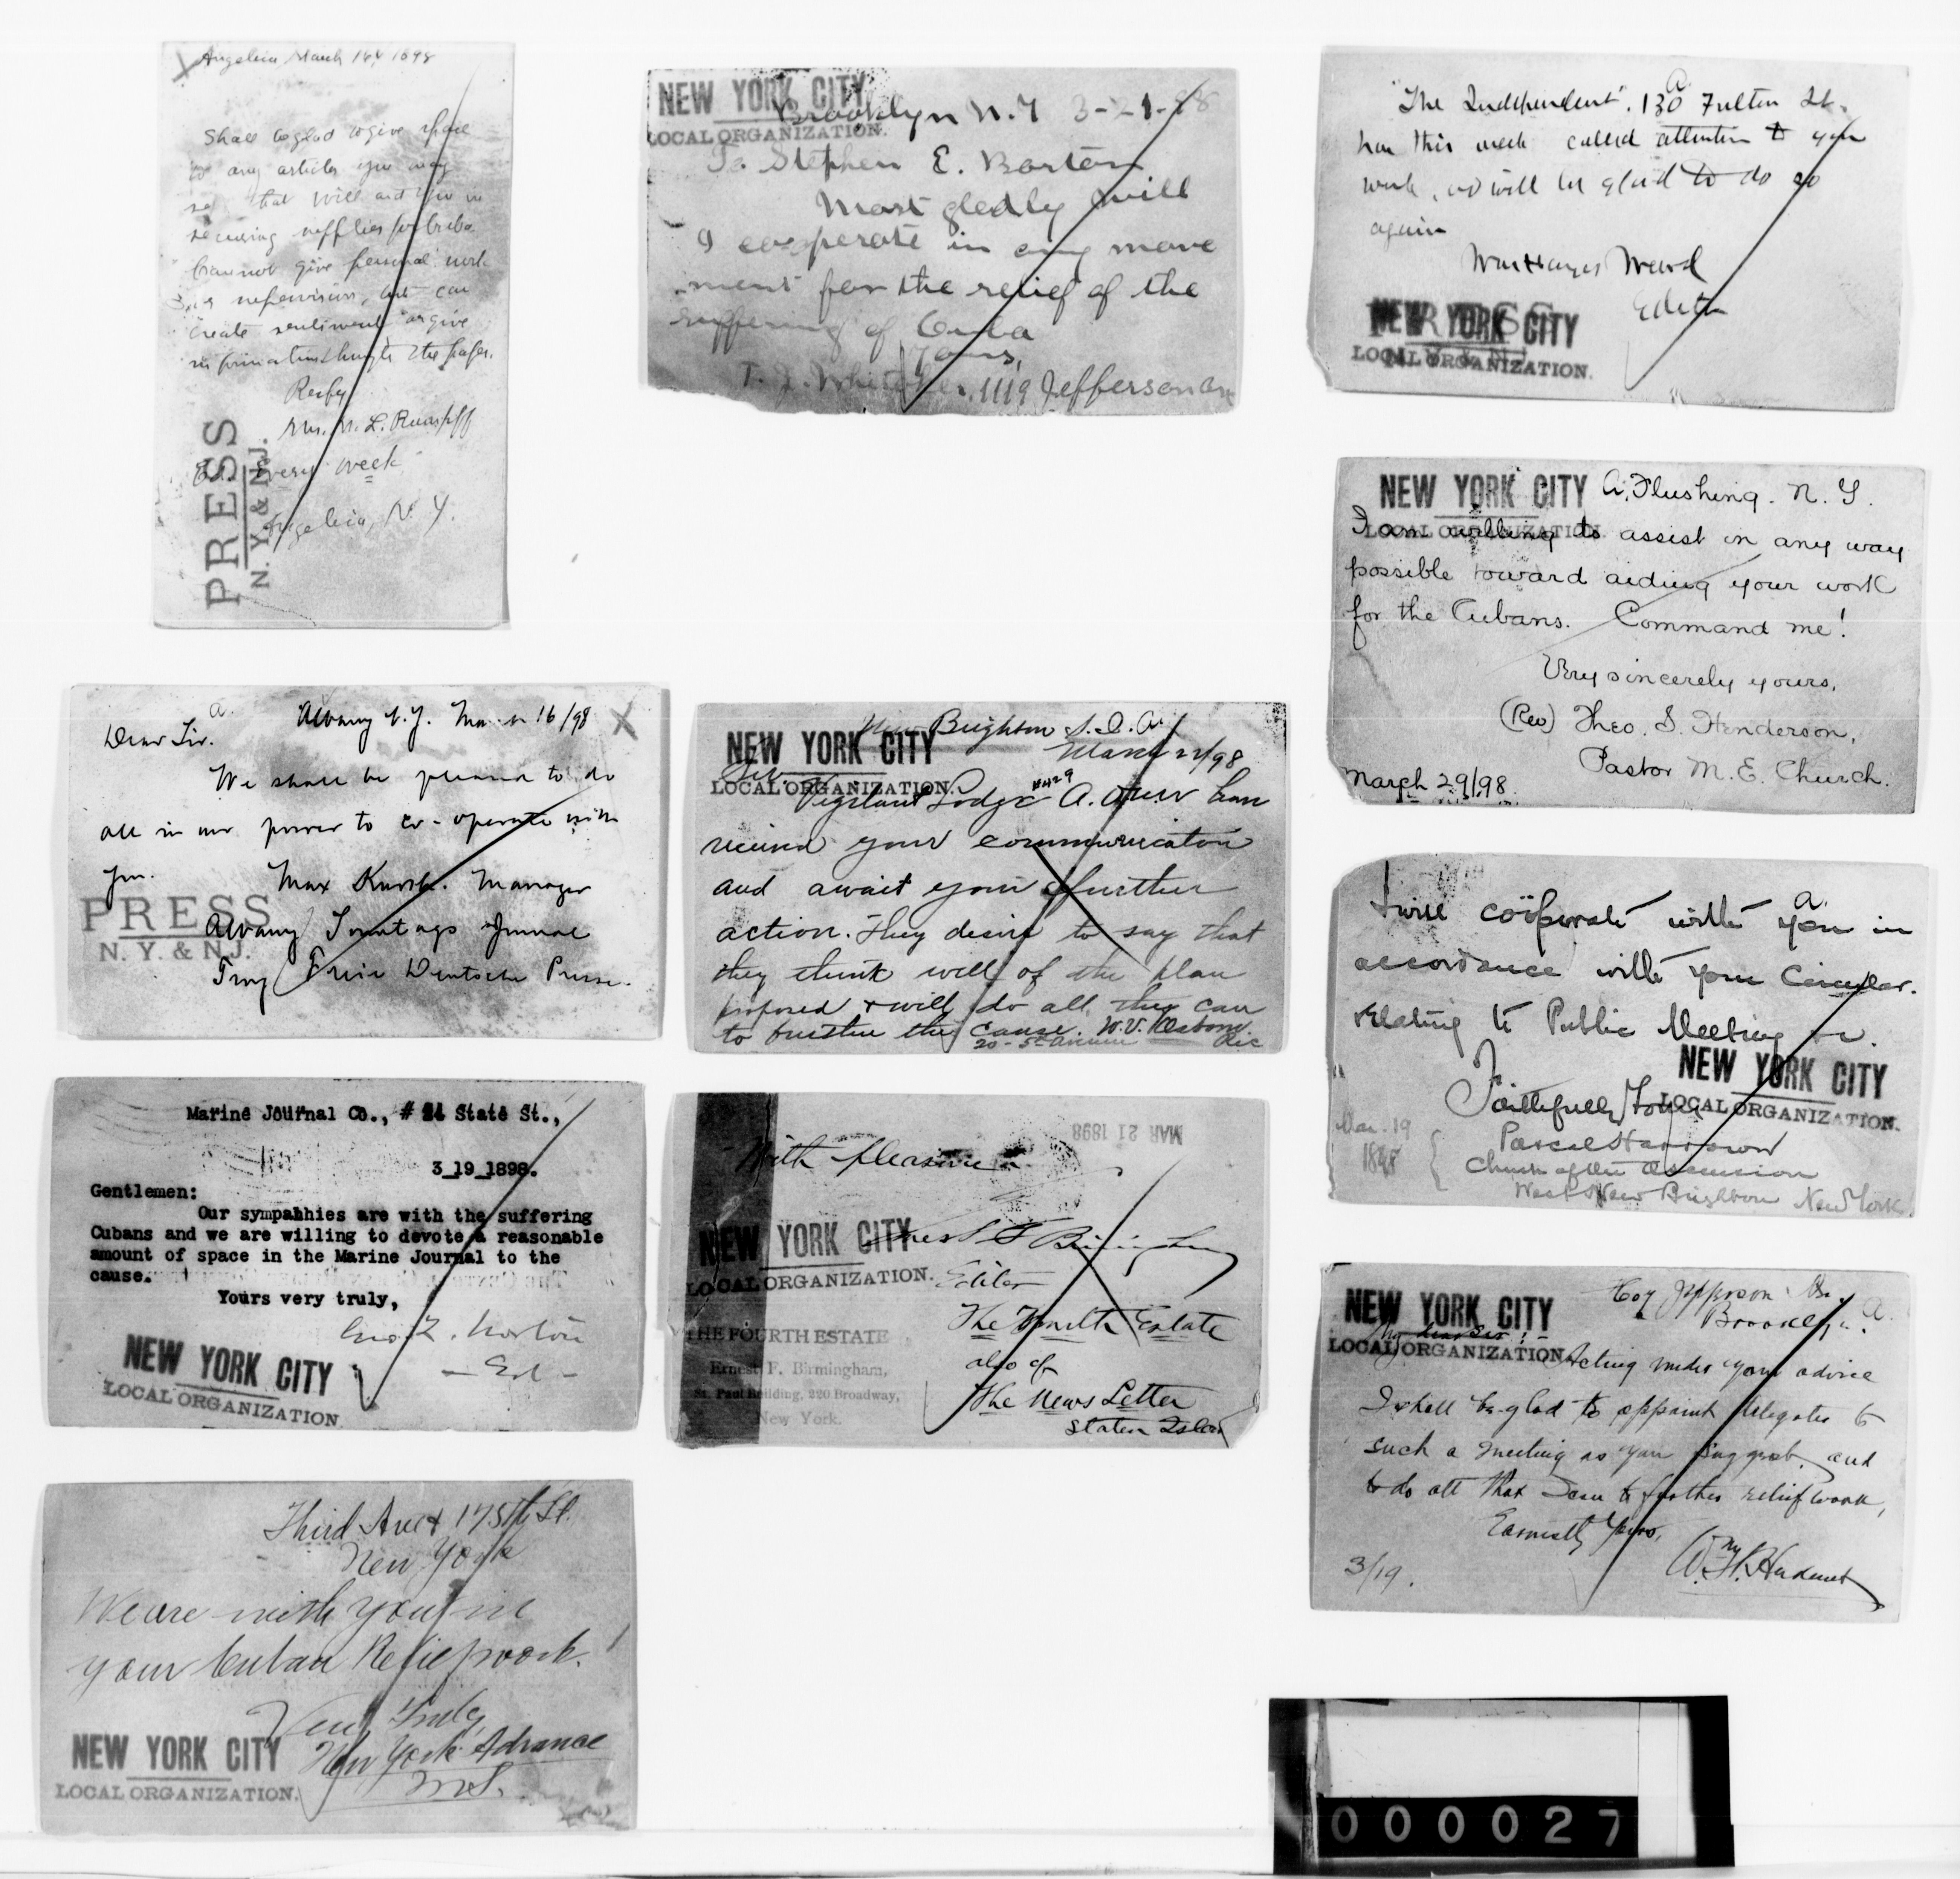 Angelica March 16, 1898
Shall be glad to give space
to any articles you may
that will aid you in
securing supplies for Cuba.
Cannot give personal work
supervision, but can
create sentiment or give
information through the paper.
Resfy
Mrs. M. L.
Ed. "Every Week"
Angelica, N. Y.
PRESS
N. Y. & N.J.
NEW YORK CITY
LOCAL ORGANIZATION.
Brooklyn N.Y 3-21-98
To Stephen E. Barton
Most gladly will
I cooperate in any move
ment for the relief of the
suffering of Cuba
Yours,
1119 Jefferson Av
"The Independent". 130 Fulton St.
A
has this week called attention to your
work, and will be glad to do so
again
Wm Hayes Ward
Editor
NEW YORK CITY
LOCAL ORGANIZATION.
NEW YORK CITY
LOCAL ORGANIZATION.
A. Flushing. N. Y.
I am willing to assist in any way
possible toward aiding your work
for the Cubans. Command me!
Very sincerely yours,
(Rev) Theo. S. Henderson,
Pastor M. E. Church.
March 29/98.
A. Albany N.Y. March 16/98 X
Dear Sir.
We shall be pleased to do
all in our power to co-operate with
you.
Max Manager
Albany Sonntags Journal
Troy Freie Deutsche Presse.
PRESS
N. Y. & N.J.
New Brighton S. I. A.
March 22/98
NEW YORK CITY
LOCAL ORGANIZATION.
Vigilant Lodge #429 A.O.U.W have
received your communication
and await your further
action. They desire to say that
they think well of the plan
proposed & will do all they can
to further the cause. W.V. Osborne
Rec
I will coöperate with you in
A.
accordance with your Circular.
relating to Public Meeting &c.
Faithfully Yours
NEW YORK CITY
LOCAL ORGANIZATION.
Mar. 19
1898
Pascal Harrower
Church of the Ascension
West New Brighton New York
Marine Journal Co., # 24 State St.,
3_19_1898.
Gentlemen:
Our sympahhies are with the suffering
Cubans and we are willing to devote a reasonable
amount of space in the Marine Journal to the
cause.
Yours very truly,
Geo. L. Norton
- Ed -
NEW YORK CITY
LOCAL ORGANIZATION.
MAR 21 1898
With pleasure
NEW YORK CITY
LOCAL ORGANIZATION.
Ernest F Birmingham
Editor
The Fourth Estate
also of
The News Letter
Staten Island
THE FOURTH ESTATE
Ernest F. Birmingham,
St. Paul Building, 220 Broadway,
New York.
Jefferson Av.
Brooklyn. A.
NEW YORK CITY
LOCAL ORGANIZATION.
My dear Sir:-
Acting under your advice
I shall be glad to appoint delegates to
such a meeting as you suggest, and
to do all that I can to further relief work,
Earnestly Yours,
3/19.
Third Ave & 175th St.
New York
We are with you in
your Cuban Relief work.
Very Truly,
New York Advance
NEW YORK CITY
LOCAL ORGANIZATION.
000027